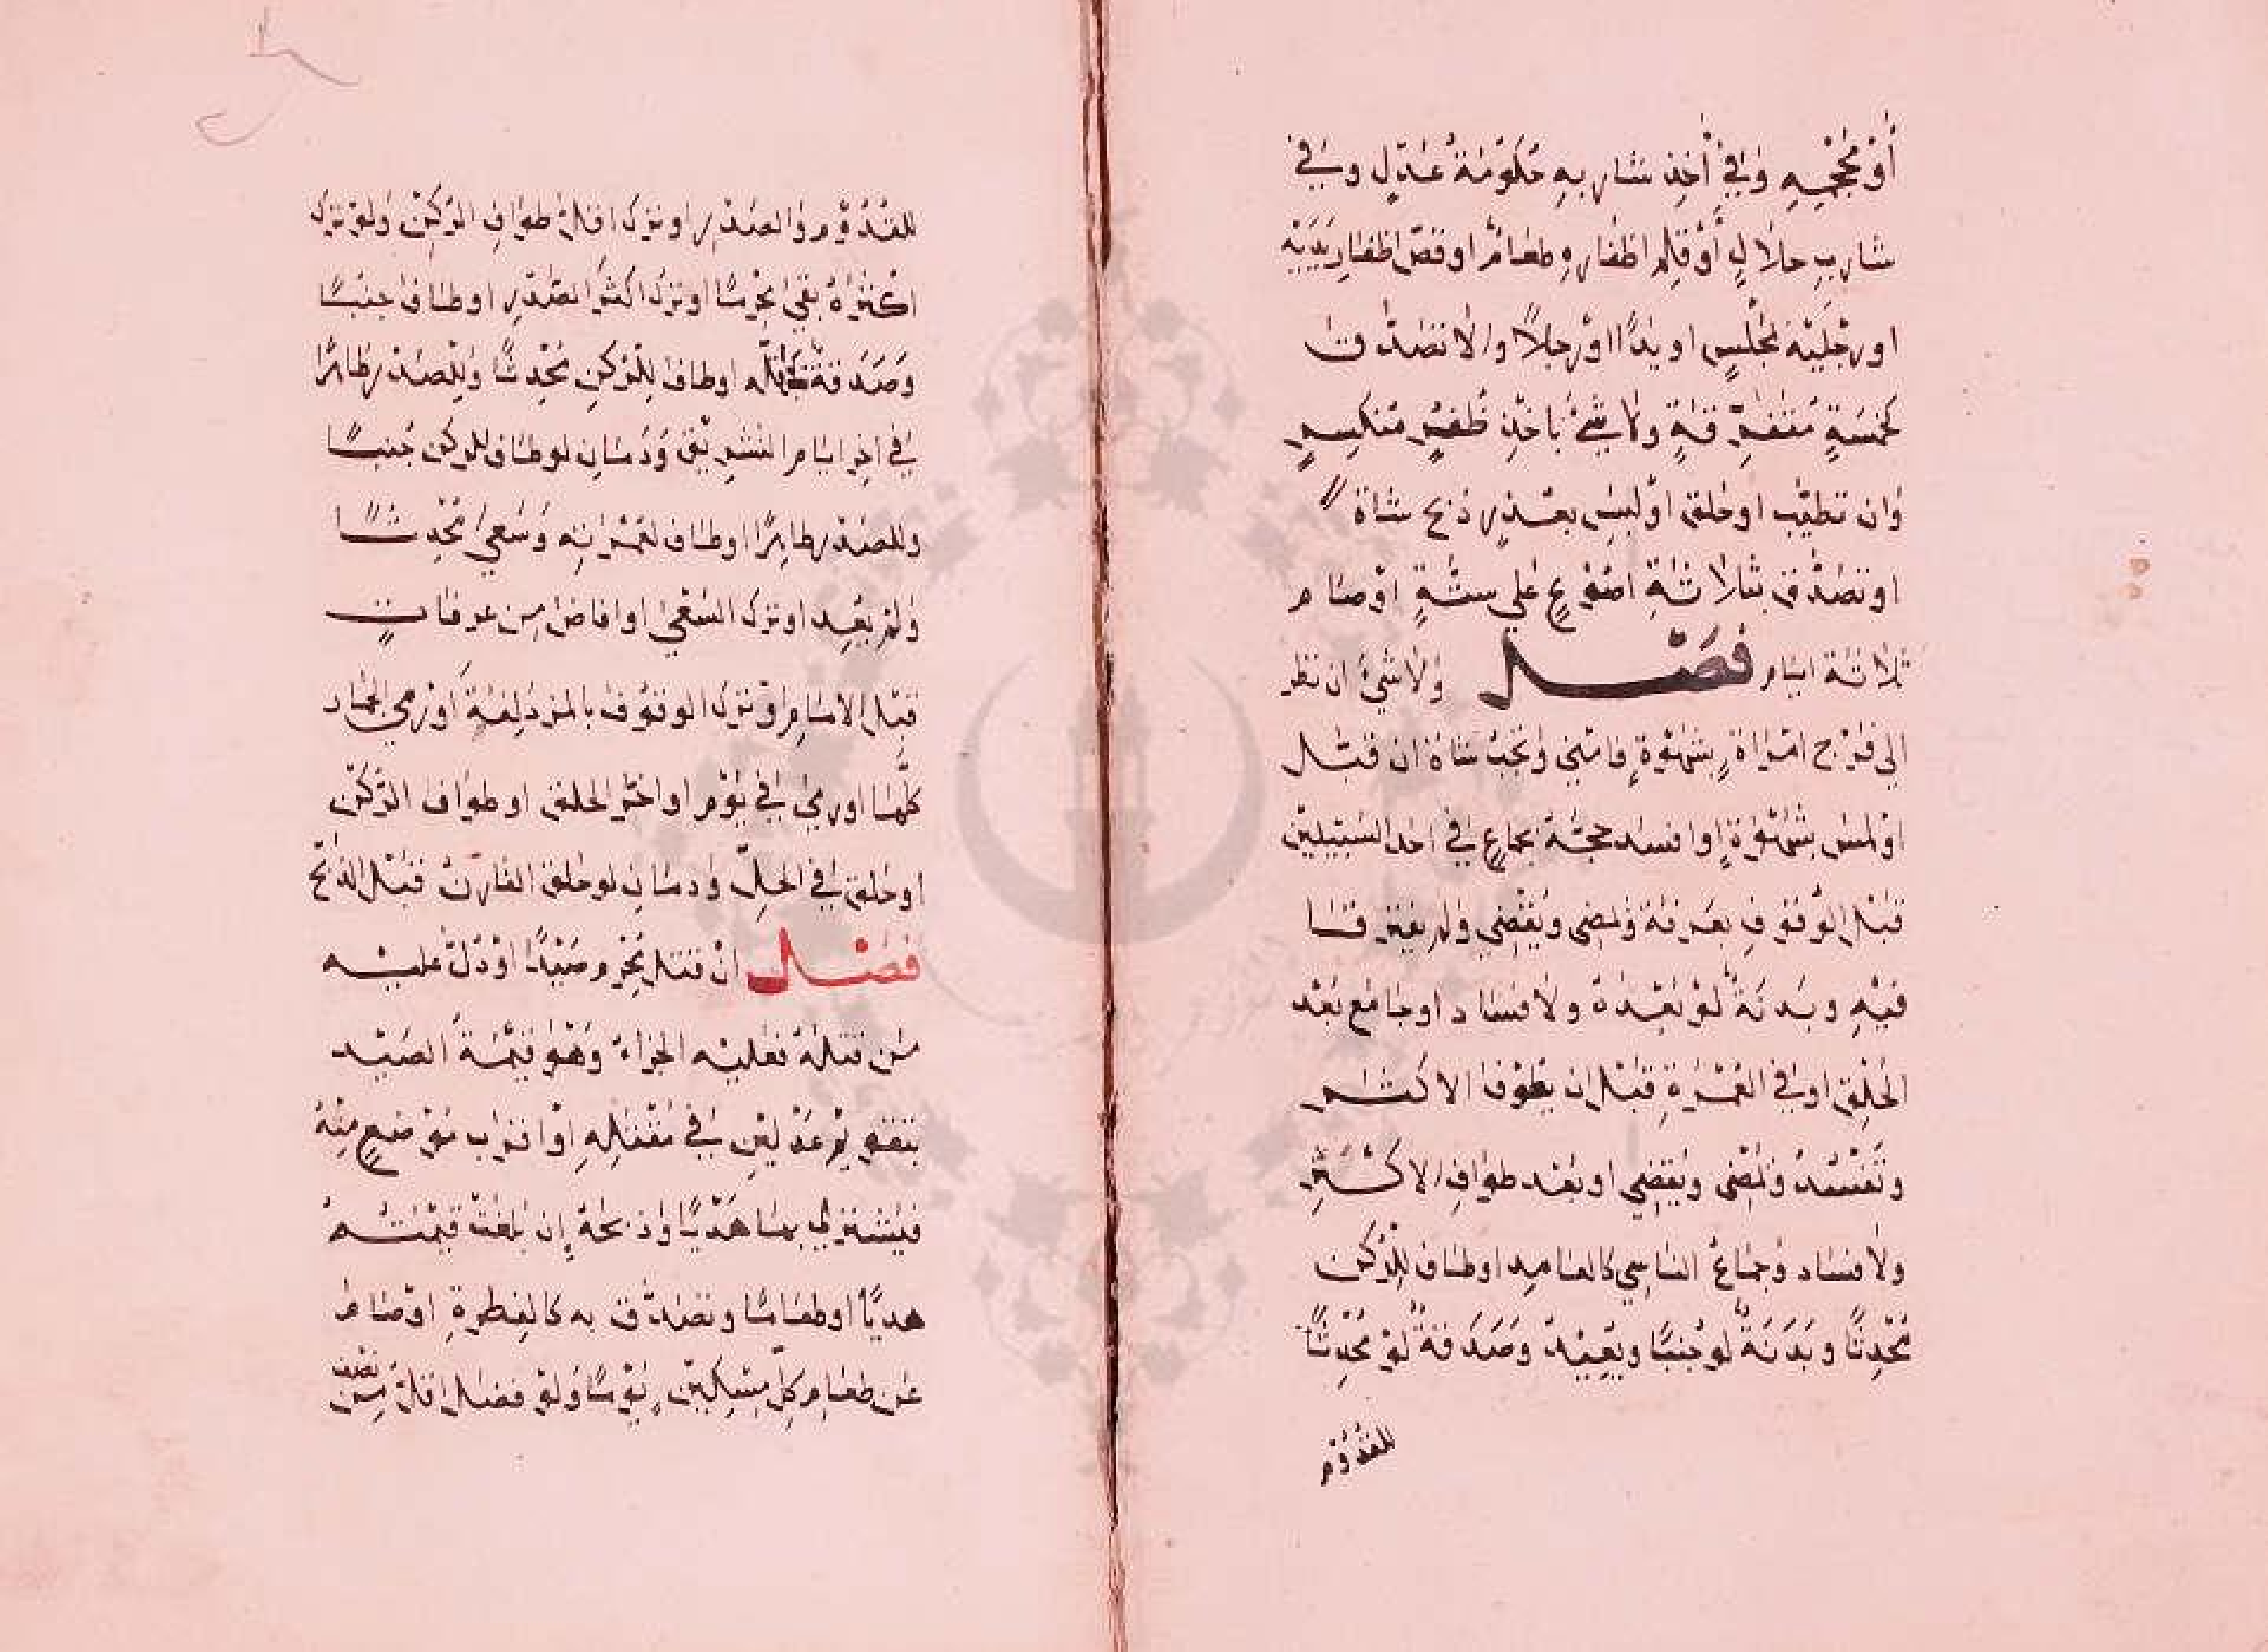 أو محجمه وفي أخذ شاربه حكومة عدل وفي
شارب حلال أو قلم اظفاره طعام او قص اظفار يديه
او رجليه بمجلس او يدا او رجلا والا تصدق
كخمسة متفرقة ولا شيء باخذ ظفر منكسر
وان تطيب او حلق او لبس بعذر ذبح شاة
او تصدق بثلاثة اصوع علي ستة او صام
ثلاثة ايام فصل ولا شيء ان نظر
الي فرج امراة بشهوة فامني وتجب شاة ان قبل
او لمس بشهوة او افسد حجه بجماع في احد السبيلين
قبل الوقوف بعرفة ويمضى ويقضي ولم يفترقا
فيه وبدنة لو بعده ولا فساد او جامع بعد
الحلق او في العمرة قبل ان يطوف الاكثر
وتفسد ويمضى ويقضي او بعد طواف الاكثر
ولا فساد وجماع الناسي كالعامد او طاف للركن
محدثا وبدنة لو جنبا ويعيد وصدقة لو محدثا
للقدوم
للقدوم والصدر او ترك اقل طواف الركن ولو ترك
اكثره بقي محرما او ترك اكثر الصدر او طاف جنبا
وصدقة باقله او طاف للركن محدثا وللصدر طاهرا
في اخر ايام التشريق ودمان لو طاف للركن جنبا
وللصدر طاهرا او طاف لعمرته وسعي محدثا
ولم يعد او ترك السعي او افاض من عرفات
قبل الامام او ترك الوقوف بالمزدلفة او رمي الجمار
كلها او رمي في يوم او اخر الحلق او طواف الركن
او حلق في الحل ودمان لو حلق القارن قبل الذبح
فصل ان قتل محرم صيدا او دل عليه
من قتله فعليه الجزاء وهو قيمة الصيد
بتقويم عدلين في مقتله او اقرب موضع منه
فيشتري بها هديا وذبحه إن بلغت قيمته
هديا او طعاما وتصدق به كالفطرة او صام
عن طعام كل مسكين يوما ولو فضل اقل من نصف